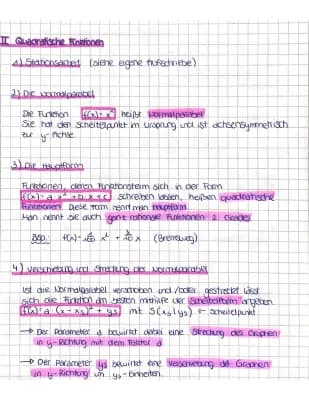 II Quadratische Funktionen
1) Stationsarbeit (siehe eigene Aufschriebe)
2) Die Normalparabel
Die Funktion f(x) = x² heißt Normalparabel
Sie hat den Scheitelpunkt im Ursprung und ist achsensymmetrisch
zur y-Achse.
3) Die Hauptform
Funktionen, deren Funktionsterm sich in der Form
f(x) = a · x² + b · x + c schreiben lassen, heißen quadratische
Funktionen. Diese Form nennt man Hauptform.
Man nennt sie auch ganz rationale Funktionen 2. Grades
Bsp.: f(x) = x² + x (Bremsweg)
4) Verschiebung und Streckung der Normalparabel
Ist die Normalparabel verschoben und/oder gestreckt lässt
sich die Funktion am besten mithilfe der Scheitelform angeben.
f(x) = a (x - xs)² + ys mit S(xs|ys) ← Scheitelpunkt
→ Der Parameter a bewirkt dabei eine Streckung des Graphen
in y-Richtung mit dem Faktor a.
→ Der Parameter ys bewirkt eine Verschiebung des Graphen
in y-Richtung um ys-Einheiten.